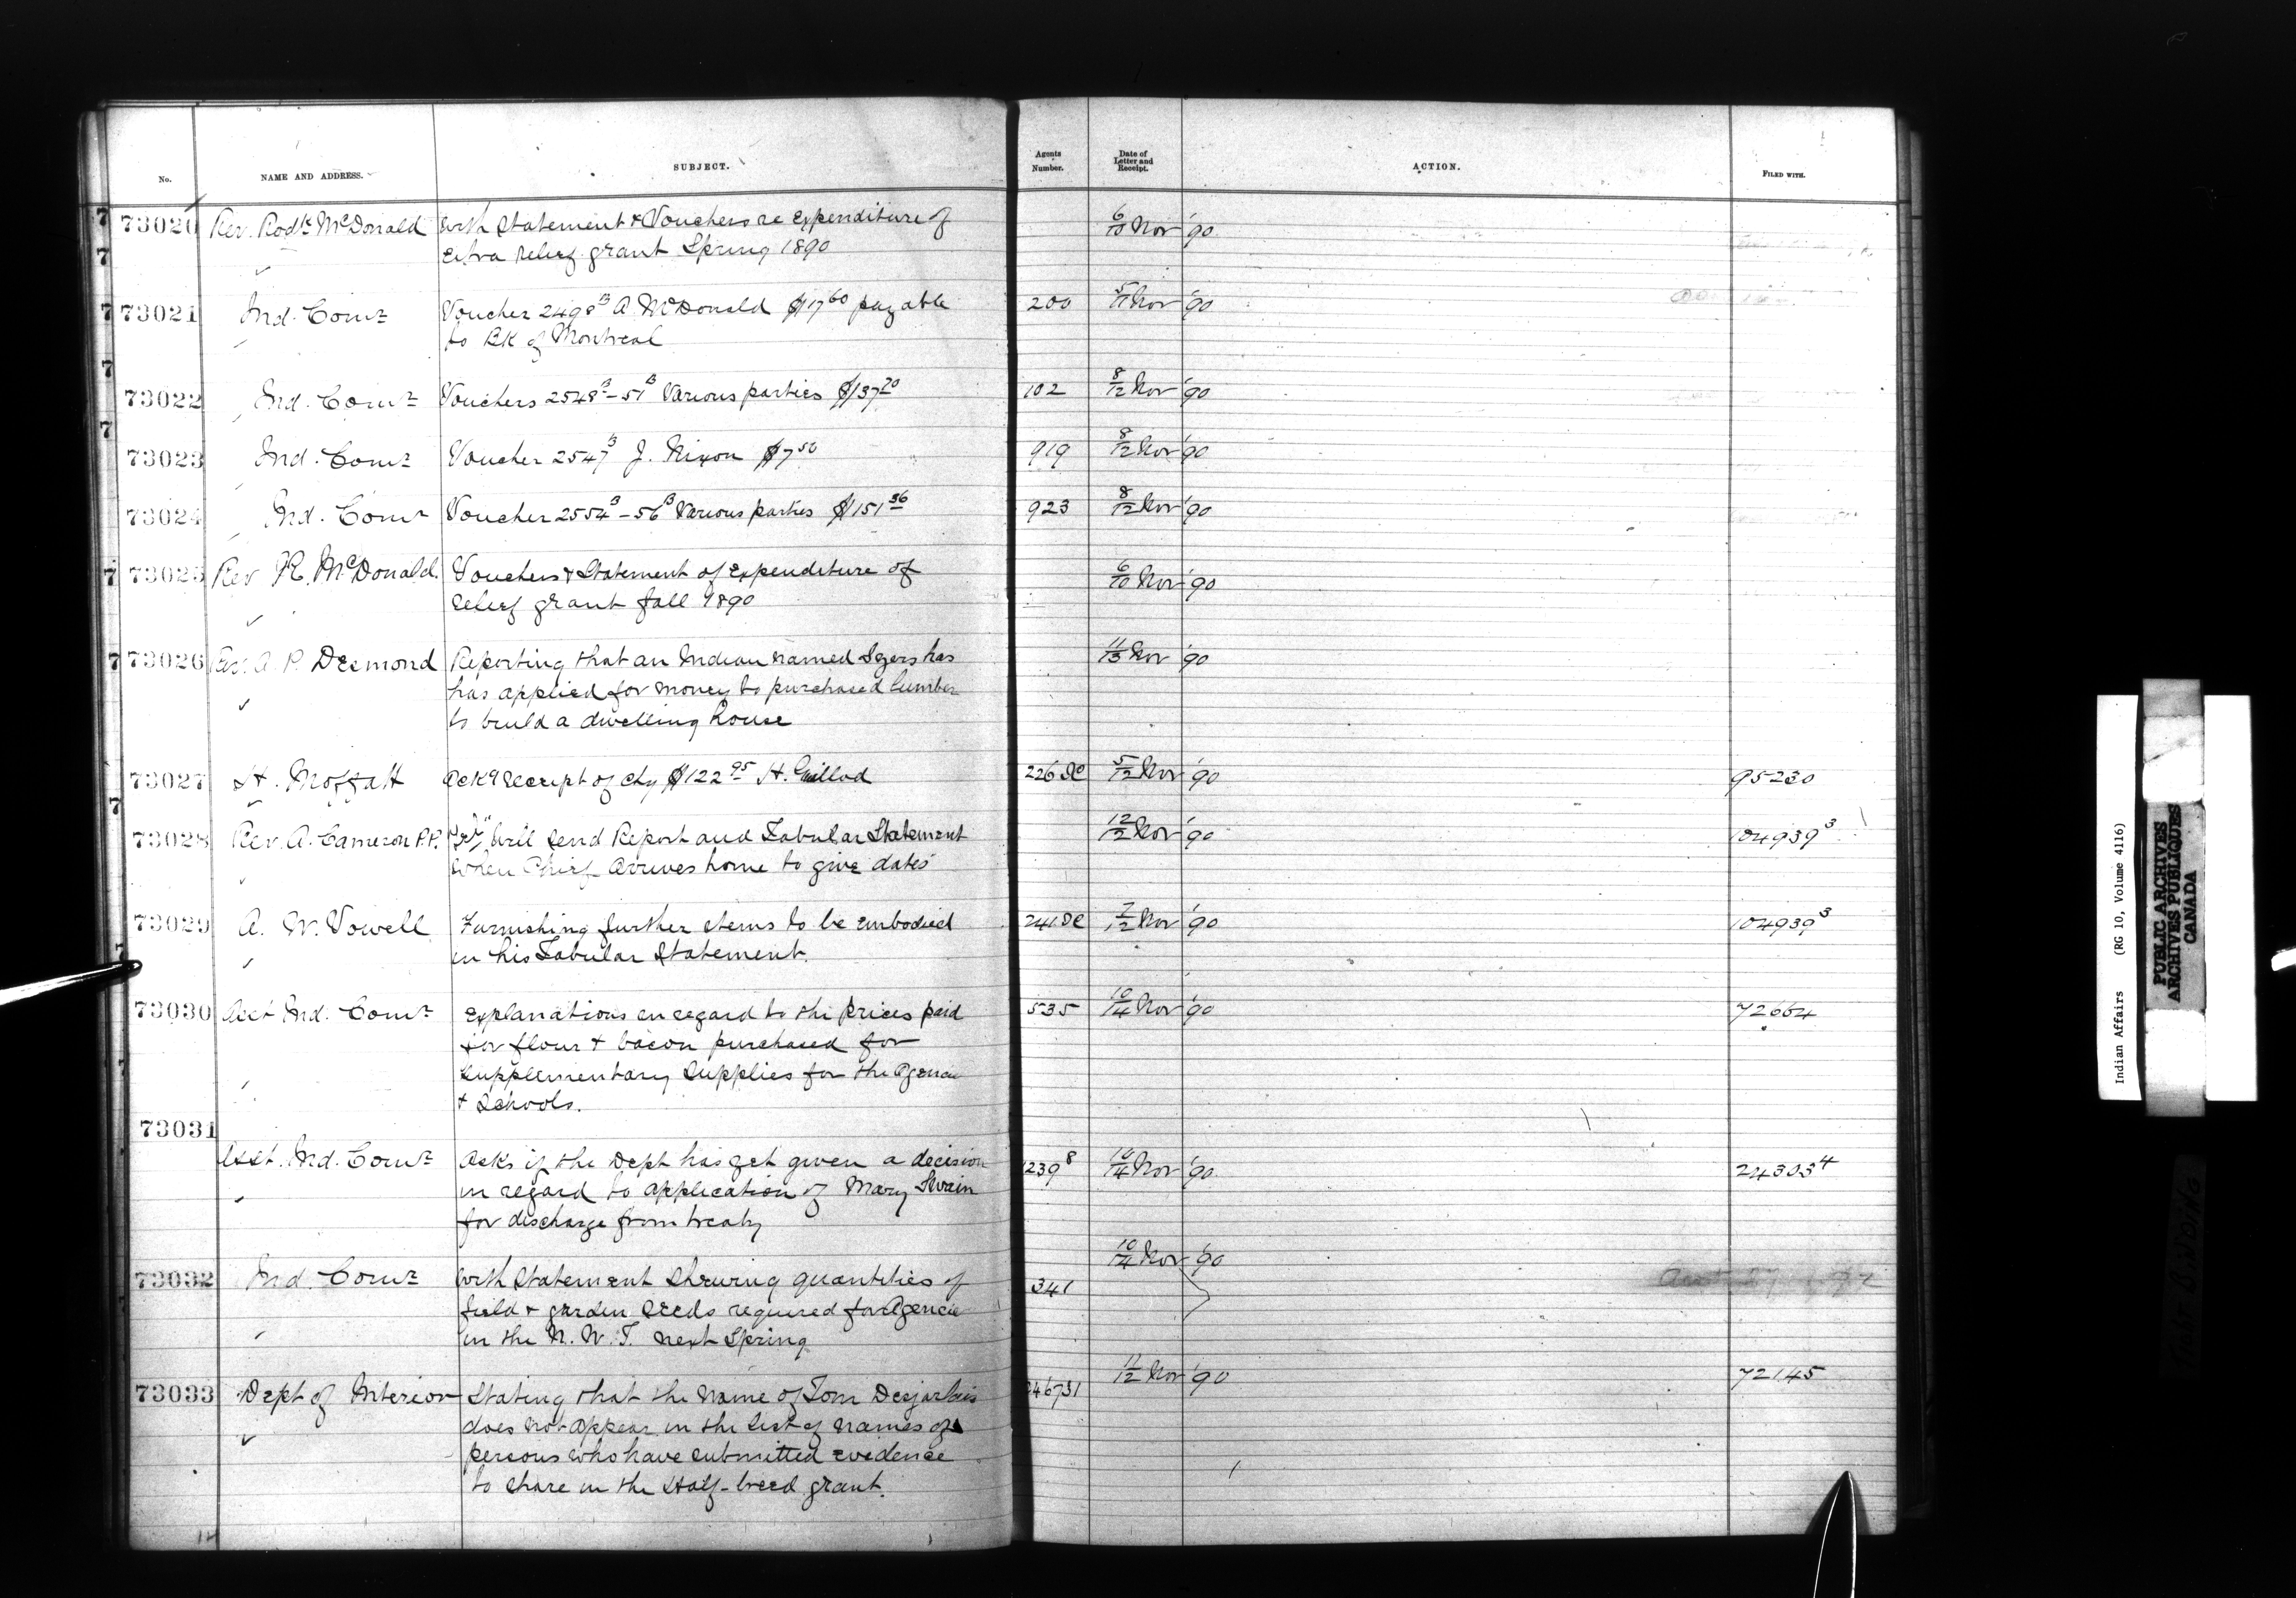 No. NAME AND ADDRESS. SUBJECT. Agents Number. Date of Letter and Receipt. ACTION. FILED WITH.
73020 Rev. Rodk McDonald With Statement & Vouchers re Expenditure of 6/10 Nov '90
Extra relief grant Spring 1890
73021 Ind. Comr Voucher 2498B A. McDonald $17.60 payable 200 5/11 Nov '90
to BK of Montreal
73022 Ind. Comr Vouchers 2548B - 51B Various parties $137.20 102 8/12 Nov '90
73023 Ind. Comr Voucher 2547B J. Nixon $7.50 919 8/12 Nov '90
73024 Ind. Comr Voucher 2554B - 56B Various parties $151.36 923 8/12 Nov '90
73025 Rev R. McDonald. Vouchers & Statement of Expenditure of 6/10 Nov '90
relief grant fall 1890
73026 Rev. A. P. Desmond Reporting that an Indian named has 11/13 Nov '90
has applied for money to purchased lumber
to build a dwelling house
73027 H. Moffatt Ackg receipt of chq $122.95 H. Guillod 226 BC 5/12 Nov '90 95230
73028 Rev. A. Cameron P.P. Will send Report and Tabular Statement 12/12 Nov '90 104939 3
when Chief arrives home to give dates
73029 A. W. Vowell Furnishing further items to be embodied 241 BC 7/12 Nov '90 104939 3
in his Tabular Statement.
73030 Asst Ind. Comr Explanations in regard to the prices paid 535 10/14 Nov '90 72664
for flour & bacon purchased for
supplementary supplies for the Agencie
& Schools.
73031
Asst. Ind. Comr Asks if the Dept has yet given a decision 1239 8 10/14 Nov '90 24303 4
in regard to application of Mary Swain
for discharge from treaty
10/14 Nov '90
73032 Ind Comr With Statement shewing quantities of 341
field & garden seeds required for Agencie
in the N. W. T. next Spring
11/12 Nov '90 72145
73033 Dept of Interior Stating that the name of Tom Desjarlais 246731
does not appear in the list of names of
persons who have submitted evidence
to share in the Half-breed grant.
Indian Affairs (RG 10, Volume 4116)
PUBLIC ARCHIVES
ARCHIVES PUBLIQUES
CANADA